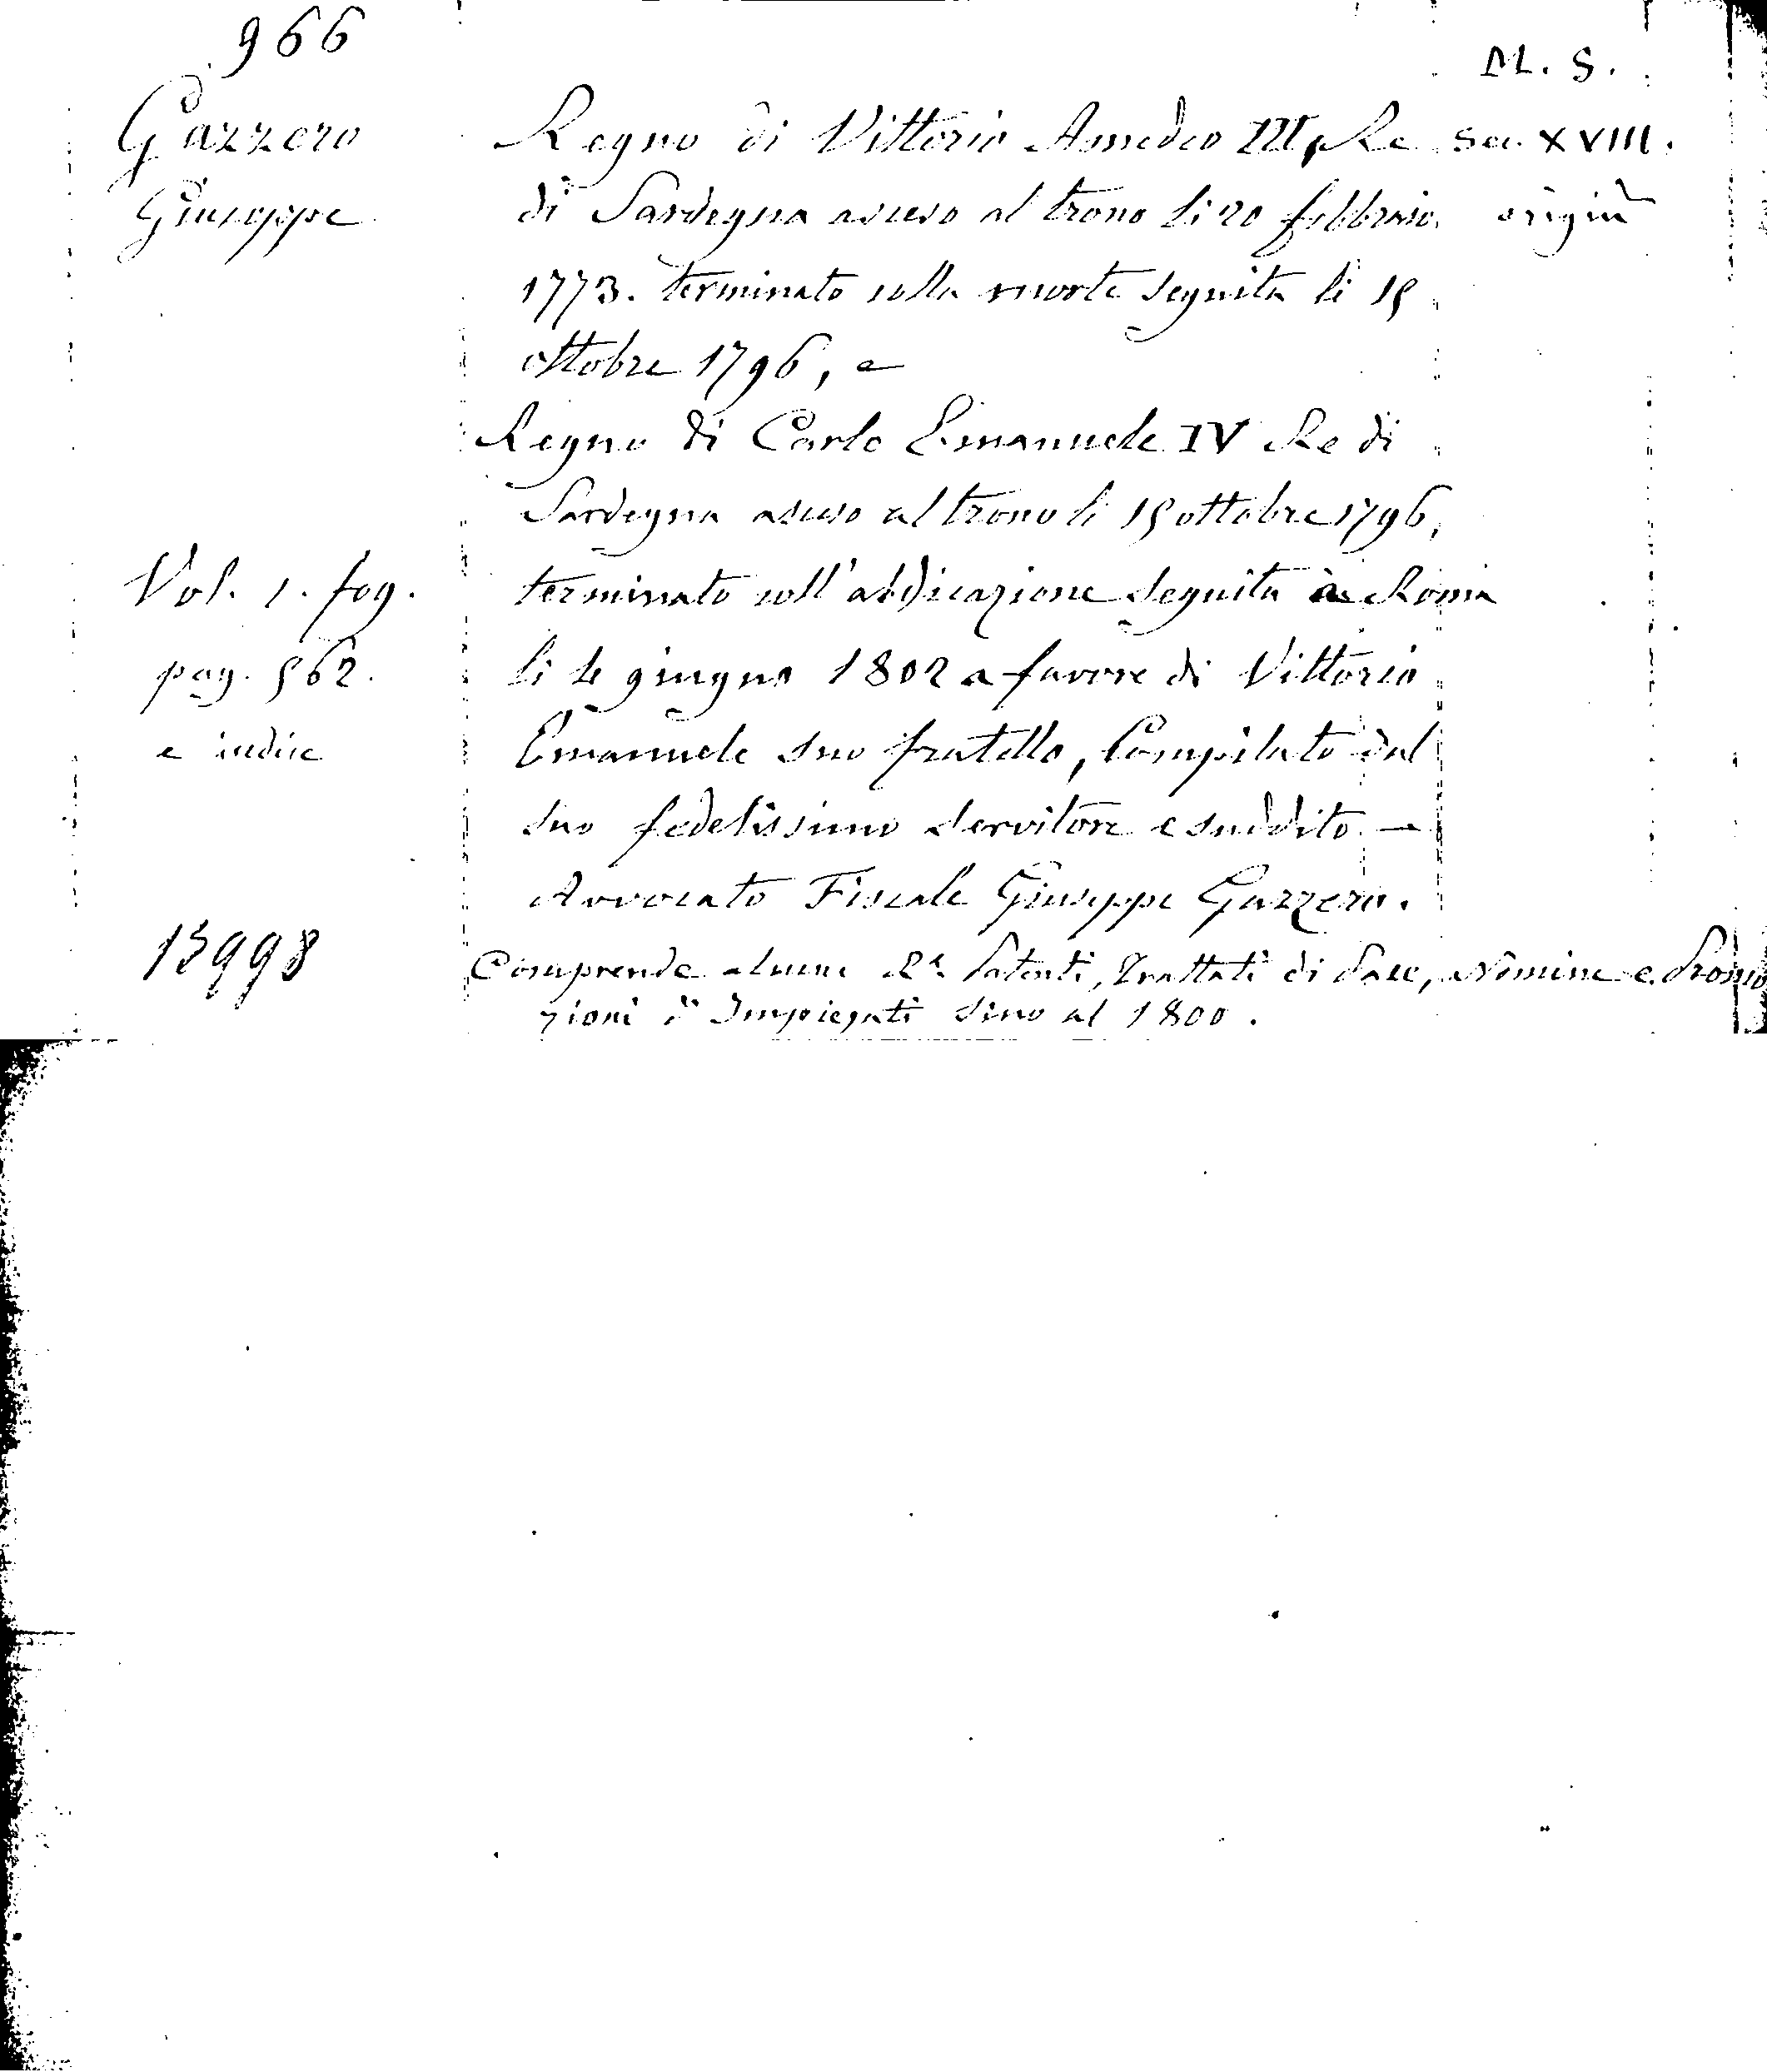 966
M. S.
Gazzero
Giuseppe
Regno di Vittorio Amedeo III, Re
Sec. XVIII.
di Sardegna asceso al trono li 20 febbraio
origin
1773. terminato colla morte seguita li 15
ottobre 1796, e
Regno di Carlo Emanuele IV Re di
Sardegna asceso al trono li 15 ottobre 1796,
terminato coll'abdicazione seguita a Roma
li 4 giugno 1802 a favore di Vittorio
Emanuele suo fratello, Compilato dal
suo fedelissimo servitore e suddito —
Avvocato Fiscale Giuseppe Gazzero.
Vol. 1. fog.
pag. 562.
e indice
13998
Comprende alcune Re Patenti, Trattati di Pace, Nomine e Promo
zioni d'Impiegati sino al 1800.